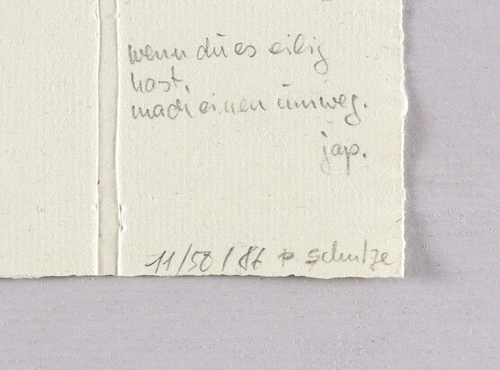 wenn du es eilig
hast,
mach einen umweg.
jap.
11/50/86 P Schulze